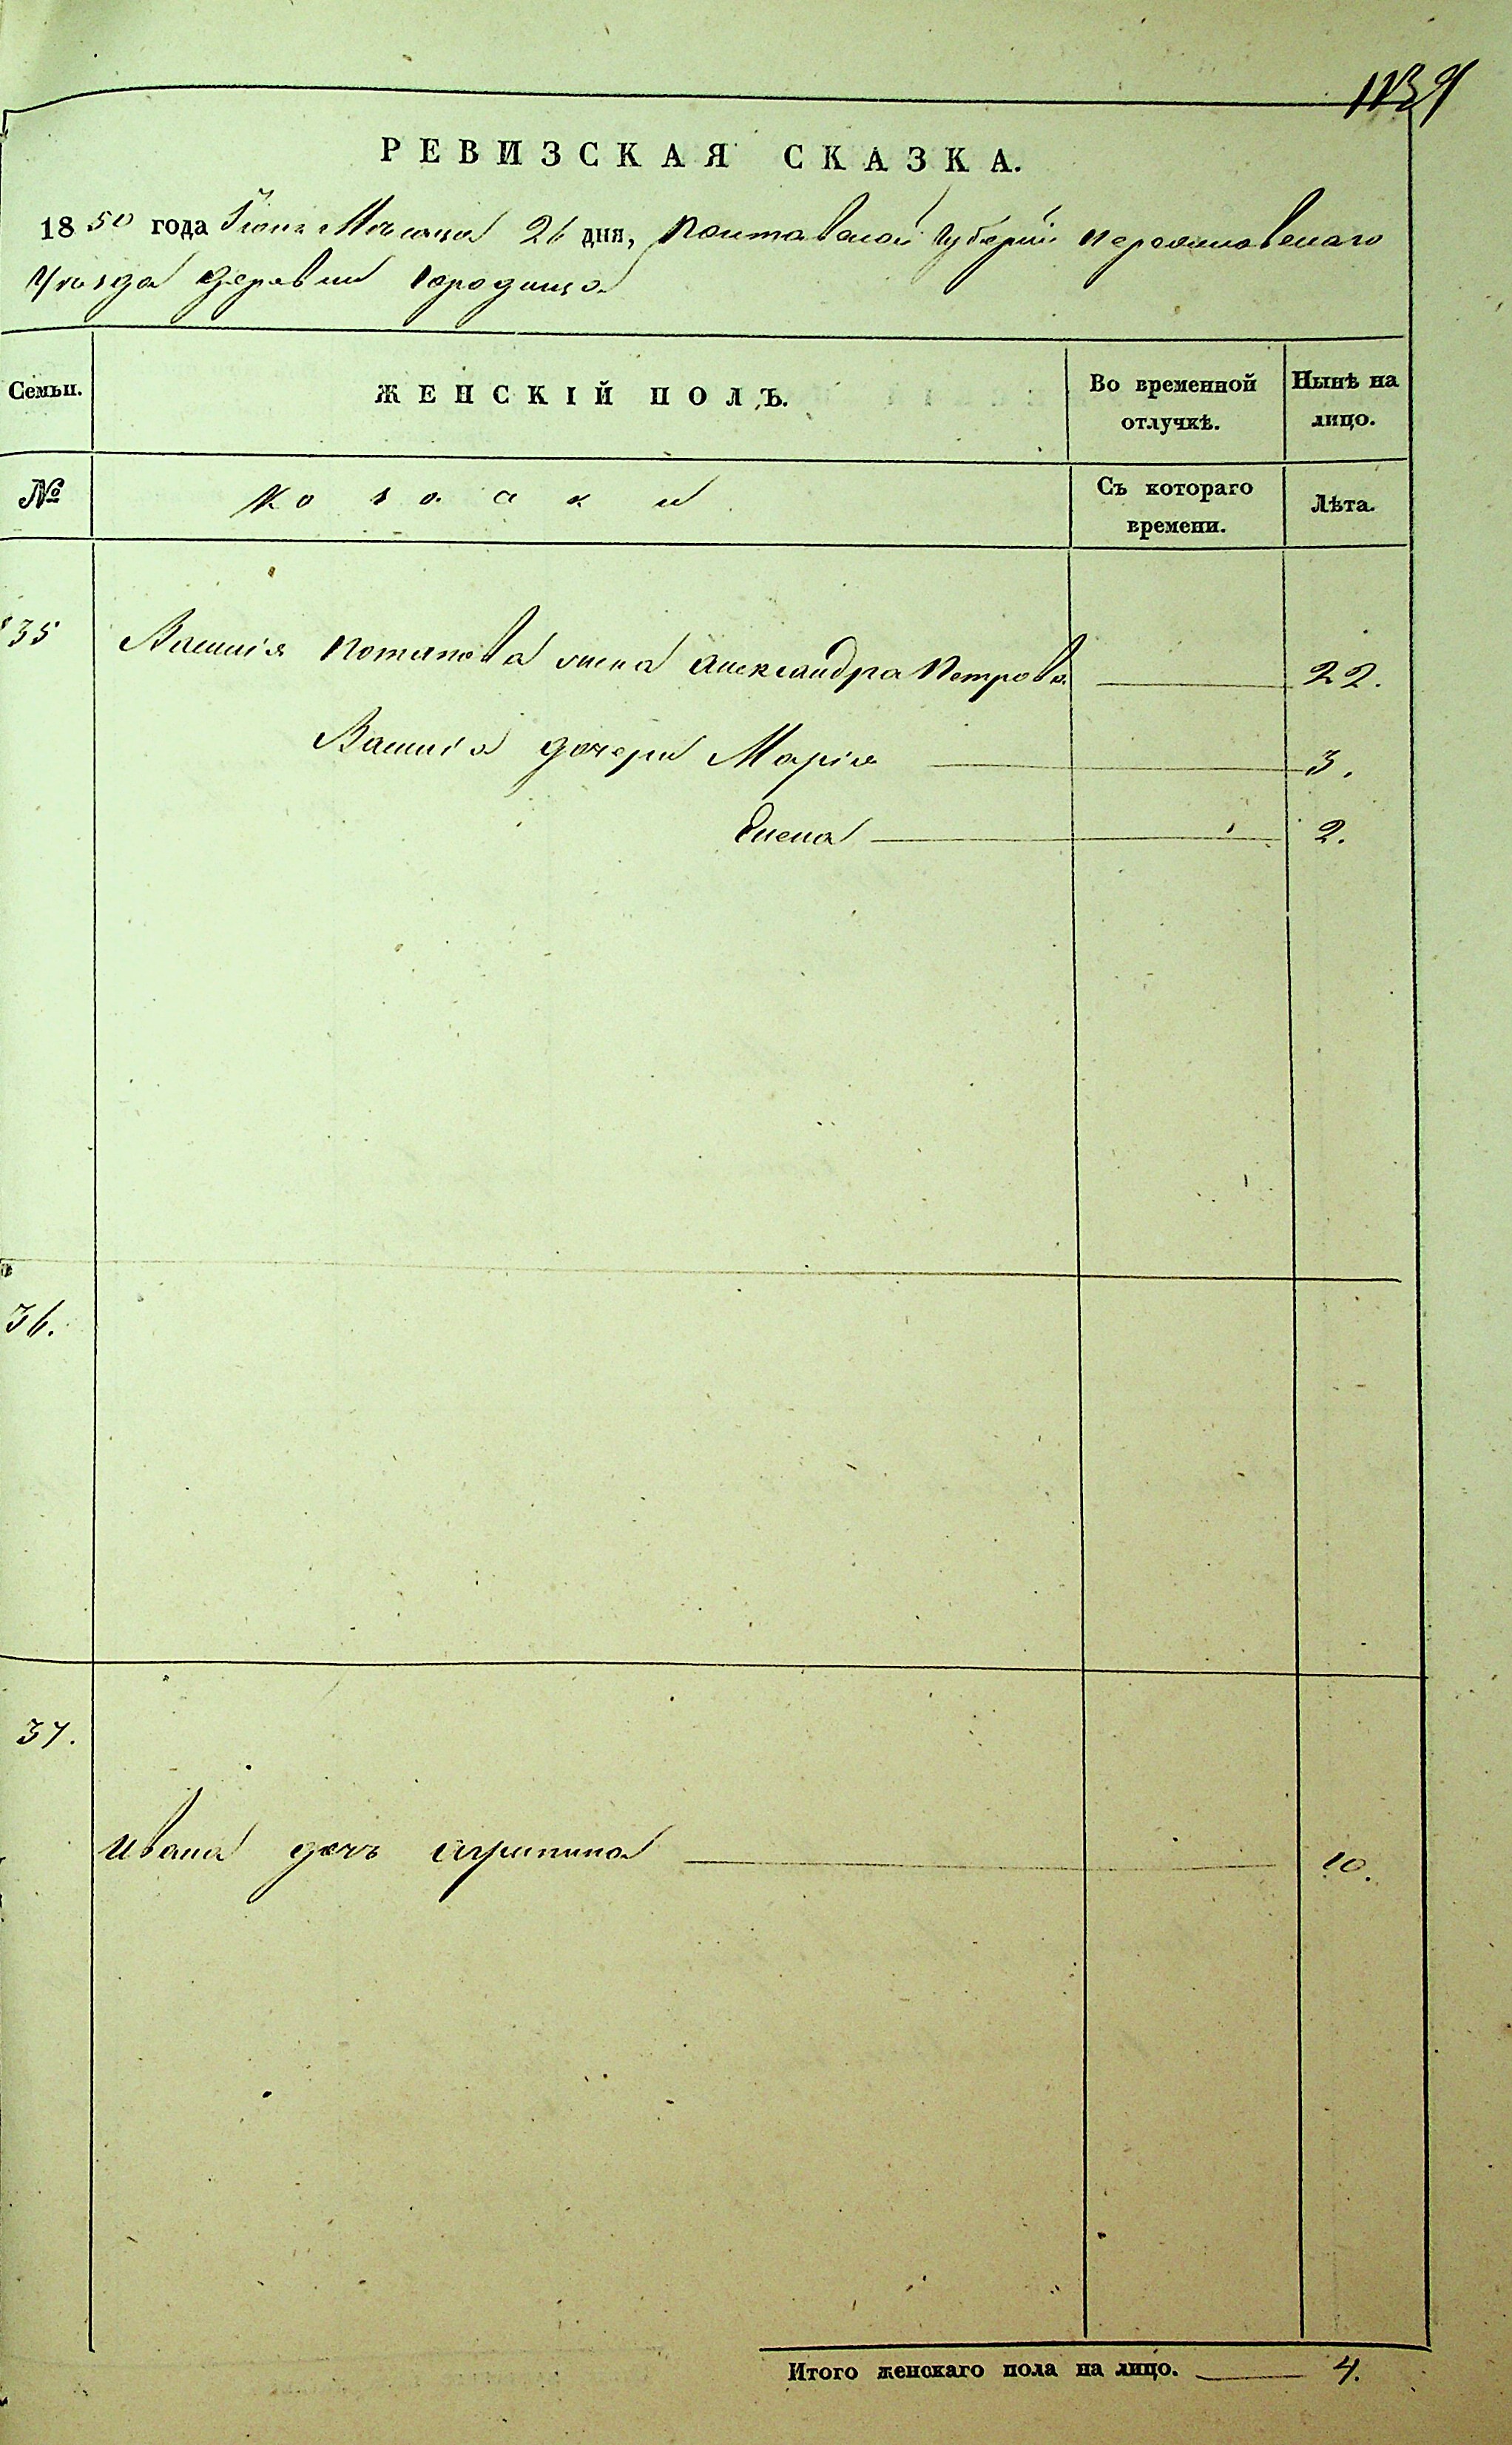 РЕВИЗСКАЯ СКАЗКА.
1850 года Іюня Месяца 26 дня, Полтавской Губерніи Переяславскаго
Уезда Деревни Городища
Семьи.
ЖЕНСКІЙ ПОЛЪ.
Во временной отлучкѣ.
Ныnѣ на лицо.
№
Козаки
Съ котораго времени.
Лѣта.
35 Василія Потапова жена Александра Петрова 22.
Василія дочери Марія 3.
Елена 2.
36.
37.
Ивана дочь Агрипина 10.
Итого женскаго пола на лицо. 4.